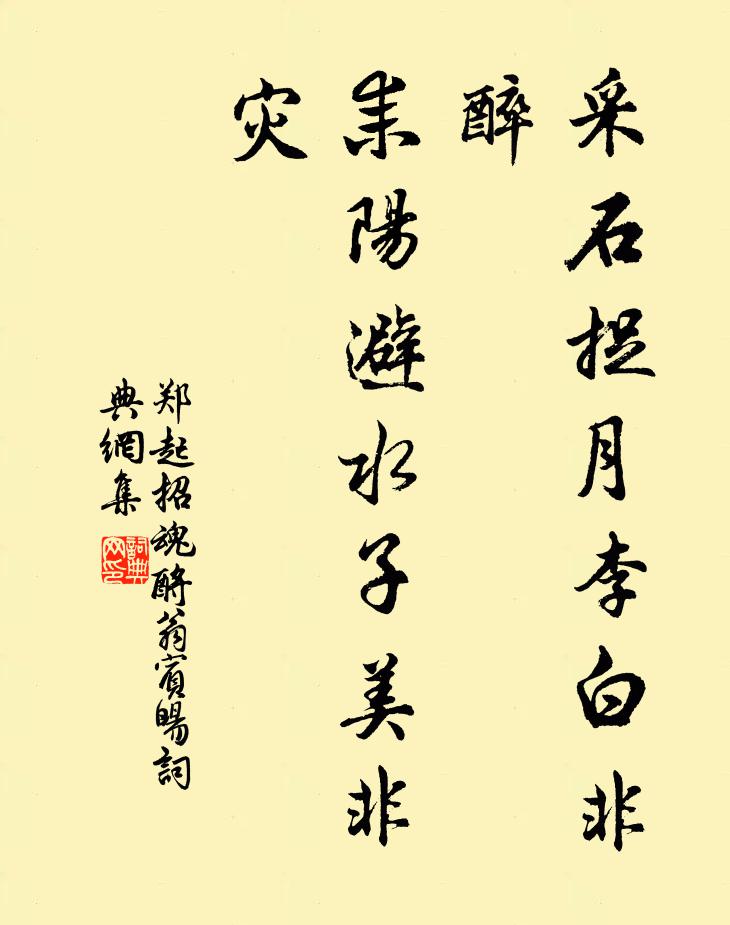 采石捉月李白非
醉
耒陽避水子美非
灾
郑起招魂酹翁賓暘詞
典網集
詞典
网印